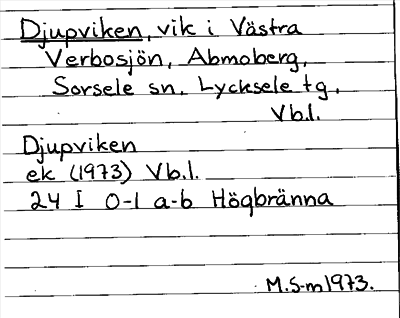 Djupviken, vik i Västra
Verbosjön, Abmoberg,
Sorsele sn. Lycksele tg.
Vb.l.
Djupviken
ek (1973) Vb.l.
24 I 0-1 a-b Högbränna
M.S-m 1973.